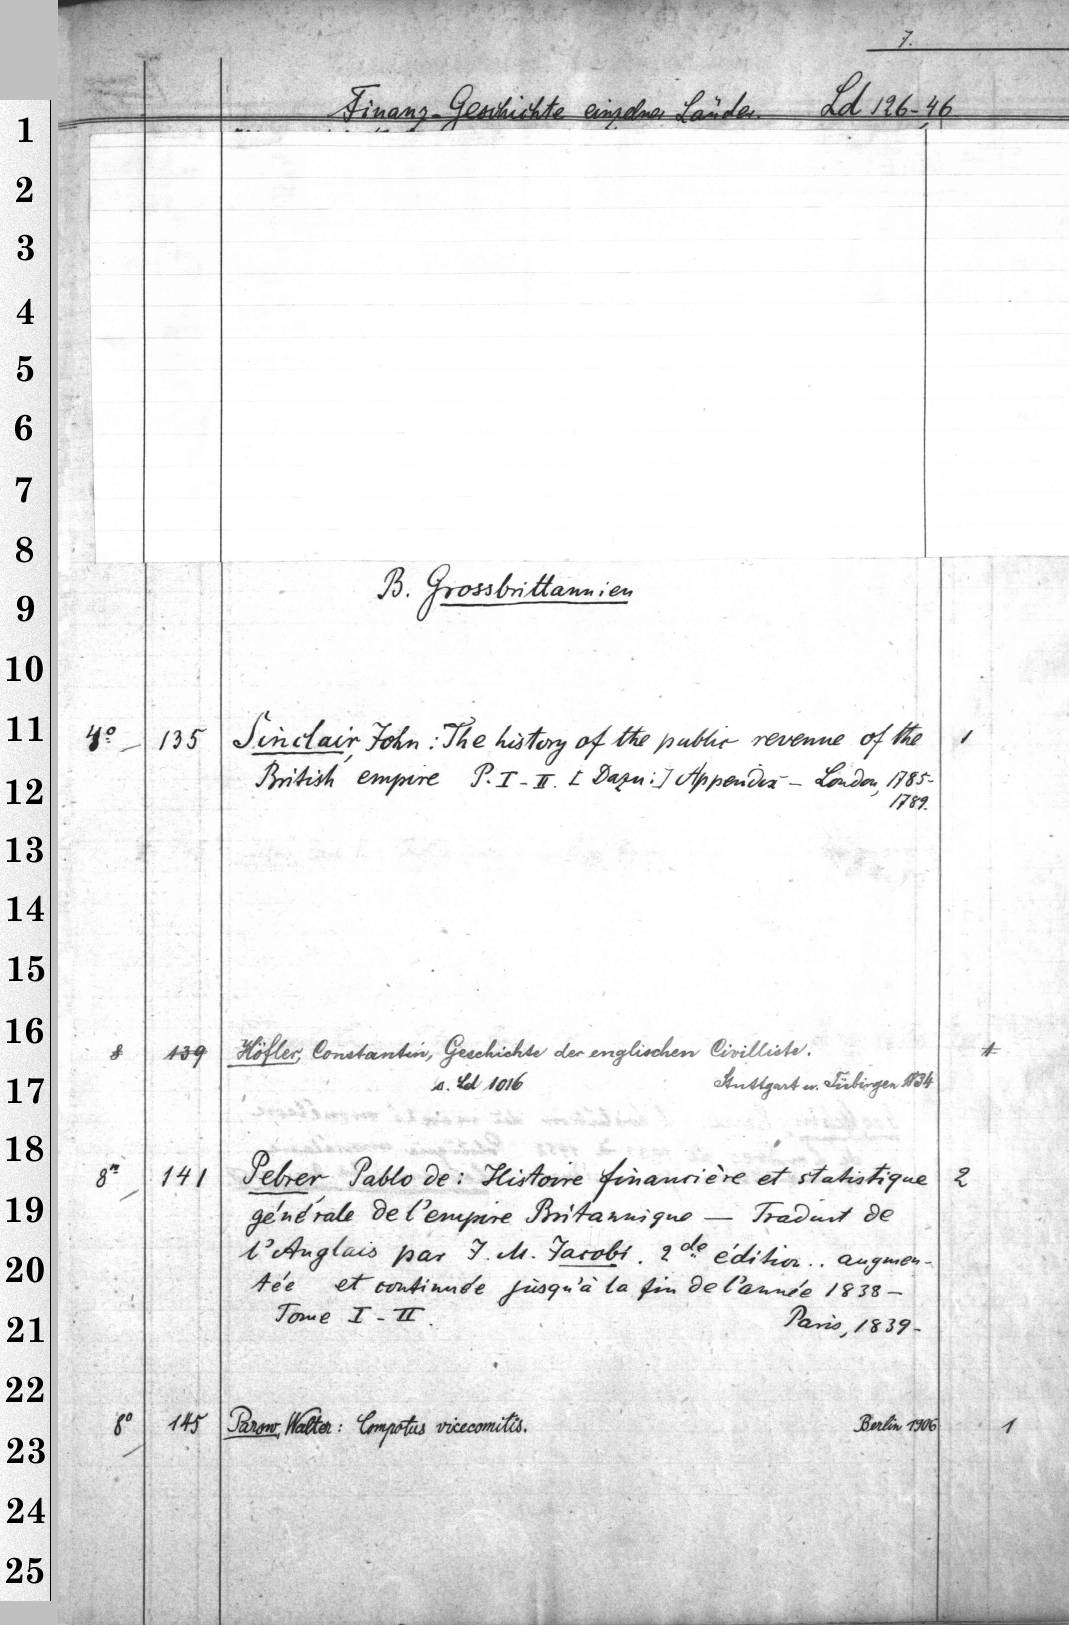 7.
Finanz-Geschichte einzelner Länder. Ld 126-46
1
2
3
4
5
6
7
8
B. Grossbrittannien
9
10
11 4º 135 Sinclair, John: The history of the public revenue of the 1
12 British empire P. I-II. [Dazu:] Appendix - London, 1785-
1789.
13
14
15
16 8 139 Höfler, Constantin, Geschichte der englischen Civilliste. 1
17 s. Ld 1016 Stuttgart u. Tübingen 1834
18 8º 141 Pebrer, Pablo de: Histoire financière et statistique 2
19 générale de l'empire Britannique — Traduit de
20 l'Anglais par J. M. Jacobi. 2de édition.. augmen-
tée et continuée jusqu'à la fin de l'année 1838 -
21 Tome I - II. Paris, 1839-
22
23 8º 145 Parow, Walter: Compotus vicecomitis. Berlin 1906 1
24
25